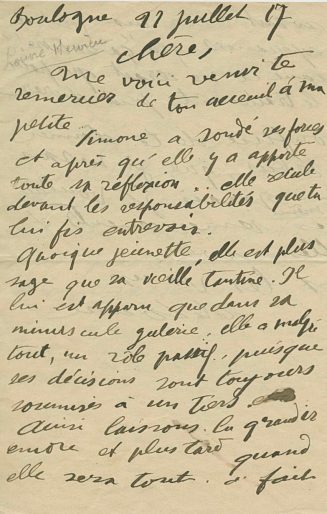 Boulogne 22 juillet 17
chères,
Me voici venir te
remercier de ton accueil à ma
petite
Simone a sondé ses forces
et après qu'elle y a apporté
toute sa réflexion.. elle recule
devant les responsabilités que tu
lui fis entrevoir.
Quoique jeunette, elle est plus
sage que sa vieille tantine. Il
lui est apparu que dans sa
minuscule galerie, elle a malgré
tout, un rôle passif, puisque
ses décisions sont toujours
soumises à un tiers
Ainsi laissons la grandir
encore et plus tard quand
elle sera tout à fait